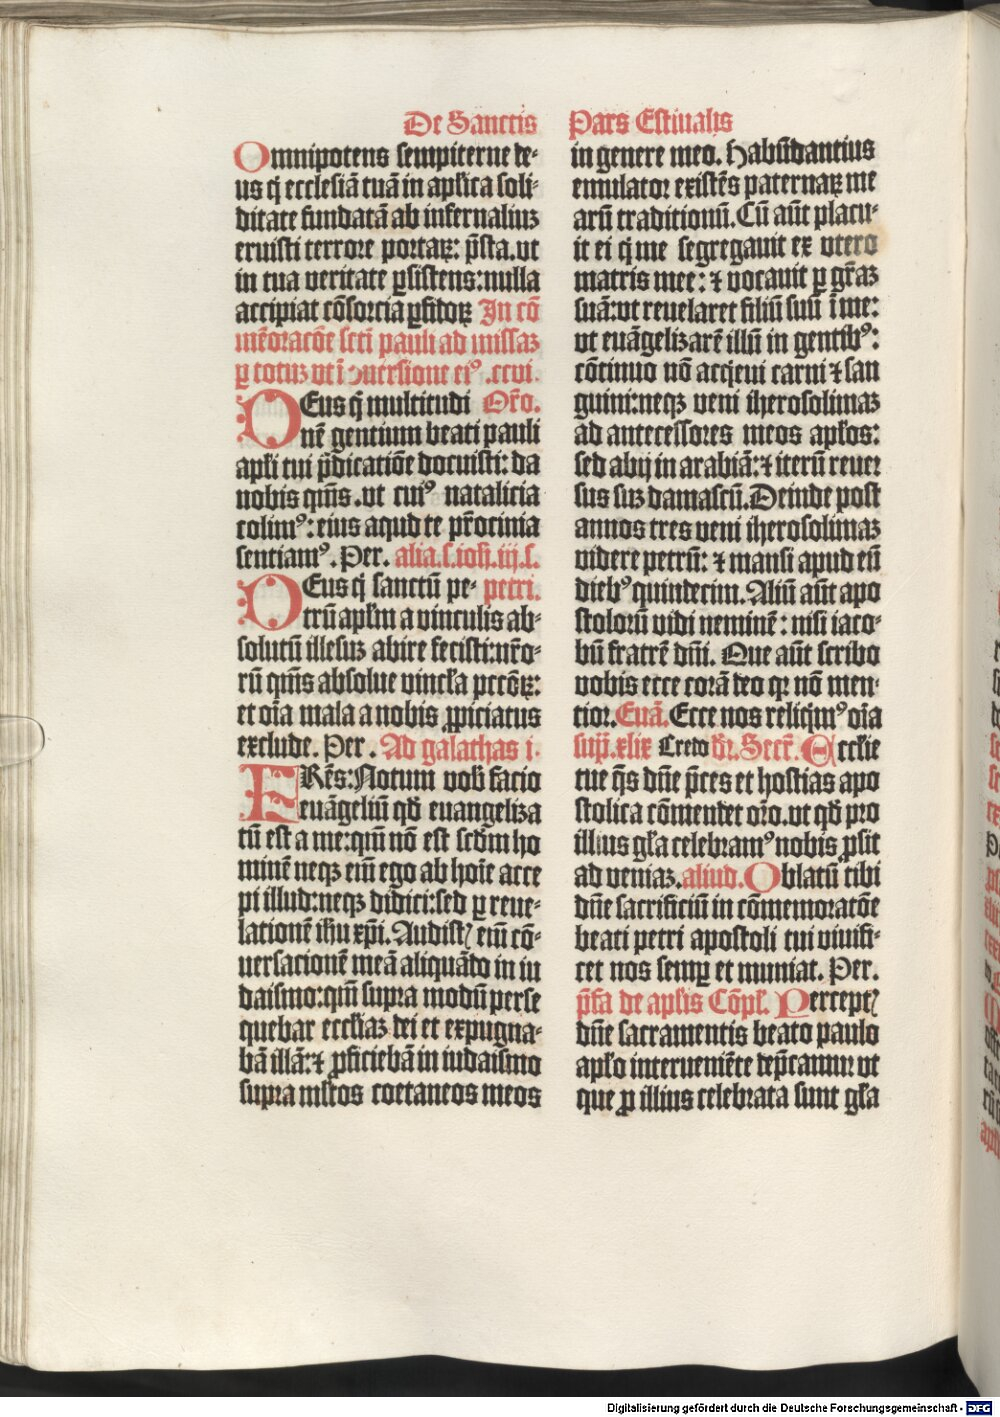 De Sanctis
Omnipotens sempiterne de-
us q̇ ecclesiā tuā in apl̄ica soli-
ditate fundatā ab infernaliuꝫ
eruisti terrore portaꝝ: p̄sta.vt
in tua veritate ꝑsistens:nulla
accipiat cōsorcia ꝑfidoꝝ In cō
mēoracōe sct̄i pauli ad missaꝫ
ꝑ totuꝫ vt ī ꝯuersione eiꝰ .ccvi.
DEus q̇ multitudi Or̄o.
nē gentium beati pauli
apl̄i tui p̄dicatiōe docuisti: da
nobis qm̄s.vt cuiꝰ natalicia
colimꝰ: eius apud te pr̄ocinia
sentiamꝰ. Per. alia.s.ioh.iij.s.
DEus q̇ sanctū pe- petri.
trū apl̄m a vinculis ab-
solutū illesuꝫ abire fecisti:nr̄o-
rū qm̄s absolue vincl̄a pctōꝝ:
et oīa mala a nobis ꝓpiciatus
exclude. Per. Ad galathas i.
FRēs: Notum vob̄ facio
euāgeliū qd̄ euangeliza
tū est a me:qm̄ nō est scd̄m ho
minē neqꝫ eīn ego ab hoīe acce
pi illud:neqꝫ didici:sed ꝑ reue-
lationē ih̄u xp̄i. Audistꝭ eīn cō-
uersacionē meā aliquādo in iu
daismo:qm̄ supra modū perse
quebar eccl̄iaꝫ dei et expugna-
bā illā: ⁊ ꝓficiebā in iudaismo
supra ml̄tos coetaneos meos
Pars Estiualis
in genere meo. Habūdantius
emulator existēs paternaꝝ me
arū traditionū. Cū aūt placu-
it ei q̇ me segregauit ex vtero
matris mee: ⁊ vocauit ꝑ gr̄aꝫ
suā:vt reuelaret filiū suū ī me:
vt euāgelizarē illū in gentibꝰ:
cōtinuo nō acq̇eui carni ⁊ san
guini:neqꝫ veni iherosolimaꝫ
ad antecessores meos apl̄os:
sed abij in arabiā: ⁊ iterū reuer
sus suꝫ damascū. Deinde post
annos tres veni iherosolimaꝫ
videre petrū: ⁊ mansi apud eū
diebꝰ quindecim. Aliū aūt apo
stolorū vidi neminē: nisi iaco-
bū fratrē dn̄i. Que aūt scribo
vobis ecce corā deo qꝛ nō men-
tior. Euā. Ecce nos reliq̇mꝰ oīa
sup̄.xlix Credo dr̄. Secr̄. Eccl̄ie
tue q̄s dn̄e p̄ces et hostias apo
stolica cōmendet or̄o.vt qd̄ pro
illius gl̄a celebramꝰ nobis ꝓsit
ad veniaꝫ.aliud. Oblatū tibi
dn̄e sacrificiū in cōmemoratōe
beati petri apostoli tui viuifi-
cet nos semꝑ et muniat. Per.
p̄fa de apl̄is Cōpl̄. Perceptꝭ
dn̄e sacramentis beato paulo
apl̄o interueniēte dep̄camur vt
que ꝓ illius celebrata sunt gl̄a
Digitalisierung gefördert durch die Deutsche Forschungsgemeinschaft - DFG